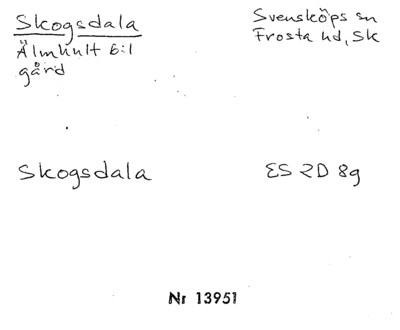 Skogsdala
Älmhult 6:1
gård
Svensköps sn
Frosta hd, Sk
Skogsdala
ES 2D 8g
Nr 13951